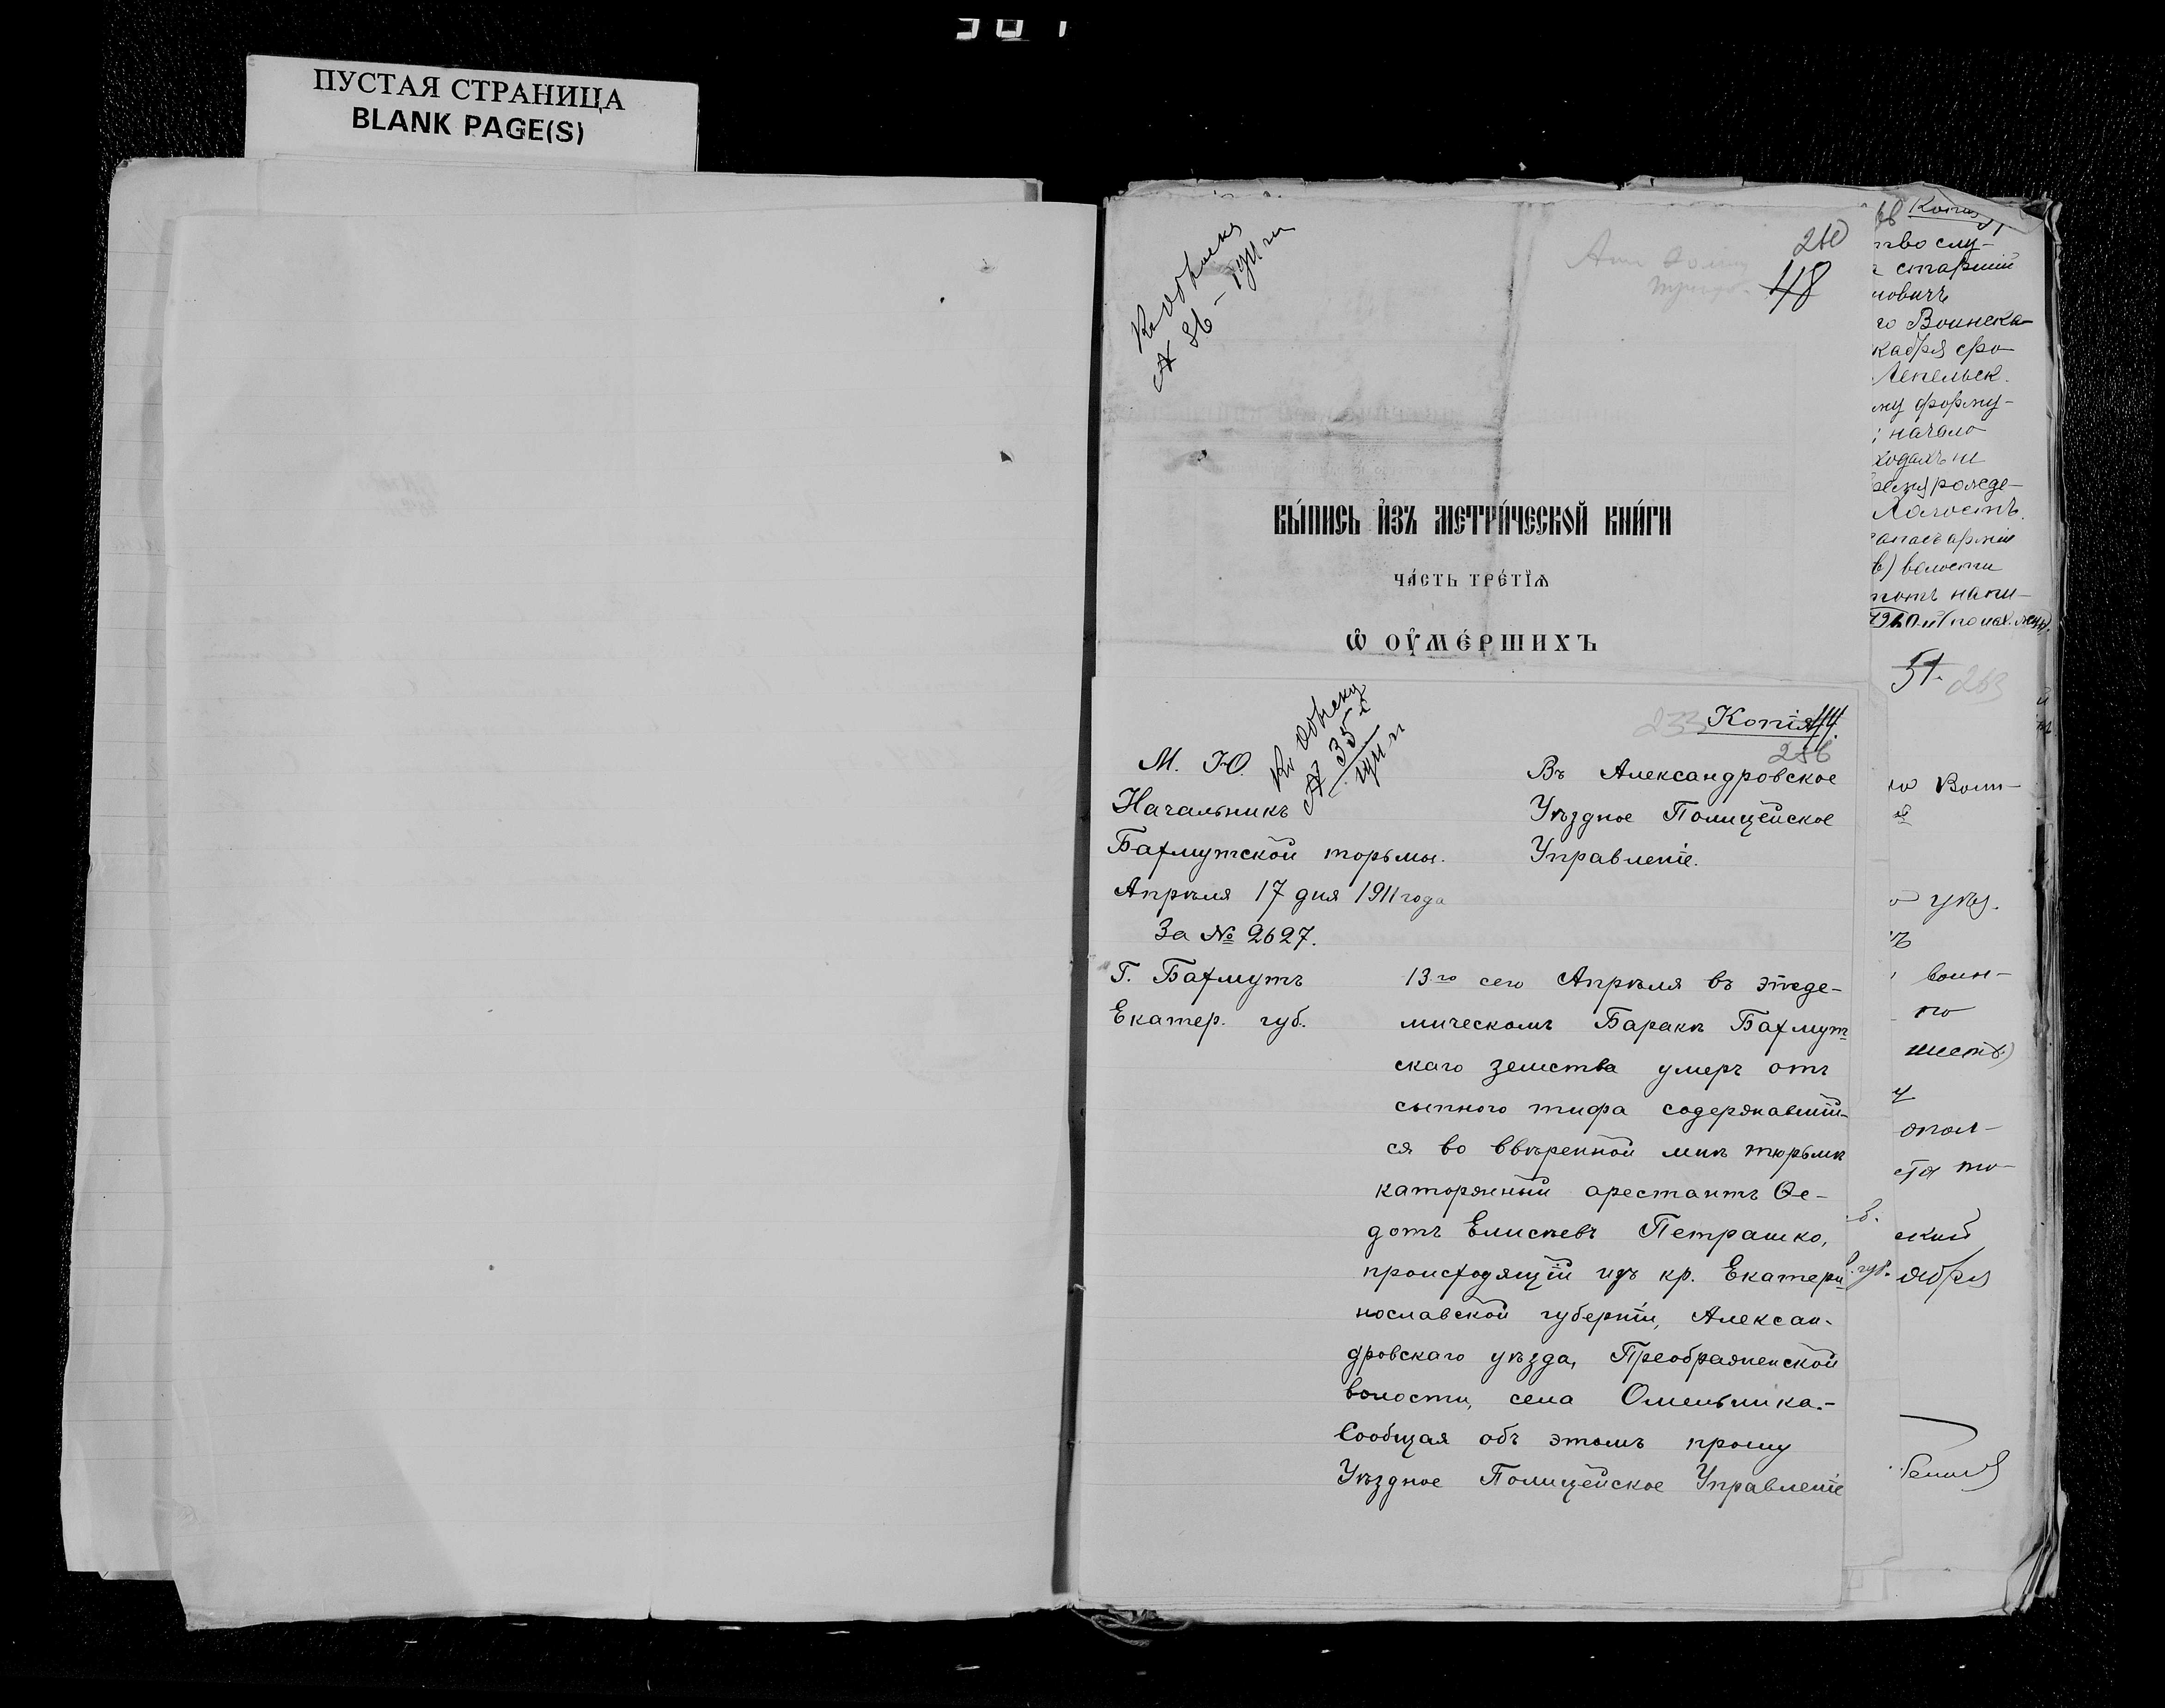 ПУСТАЯ СТРАНИЦА
BLANK PAGE(S)
260
118
ВЫ́ПИСЬ И҆ЗЪ МЕТРИ́ЧЕСКОЙ КНИ́ГИ
ЧА́СТЬ ТРЕ́ТЇѦ
Ѽ ОУ҆МЕ́РШИХЪ
233 Копія
256
М. Ю.
Начальникъ
Бахмутской торьмы.
Апрѣля 17 дня 1911 года
За № 2627.
Г. Бахмутъ
Екатер. губ.
Въ Александровское
Уѣздное Полицейское
Управленіе.
13го сего Апрѣля въ эпеде-
мическомъ Баракѣ Бахмут
скаго земства умеръ отъ
сыпного тифа содержавшій-
ся во ввѣренной мнѣ тюрьмѣ
каторжный арестантъ Ѳе-
дотъ Елисѣевъ Петрашко,
происходящій изъ кр. Екатери
нославской губерніи, Алексан-
дровскаго уѣзда, Преображенской
волости, села Омельника.-
Сообщая объ этомъ прошу
Уѣздное Полицейское Управленіе
Копія
тво слу-
старшій
новичъ
го Воинска-
кабря сро
Лепельск.
му форму-
начало
ходахъ и
рожде-
в) волости
51.
263
Воин-
уѣз.
воин-
по
опол-
ский
ября